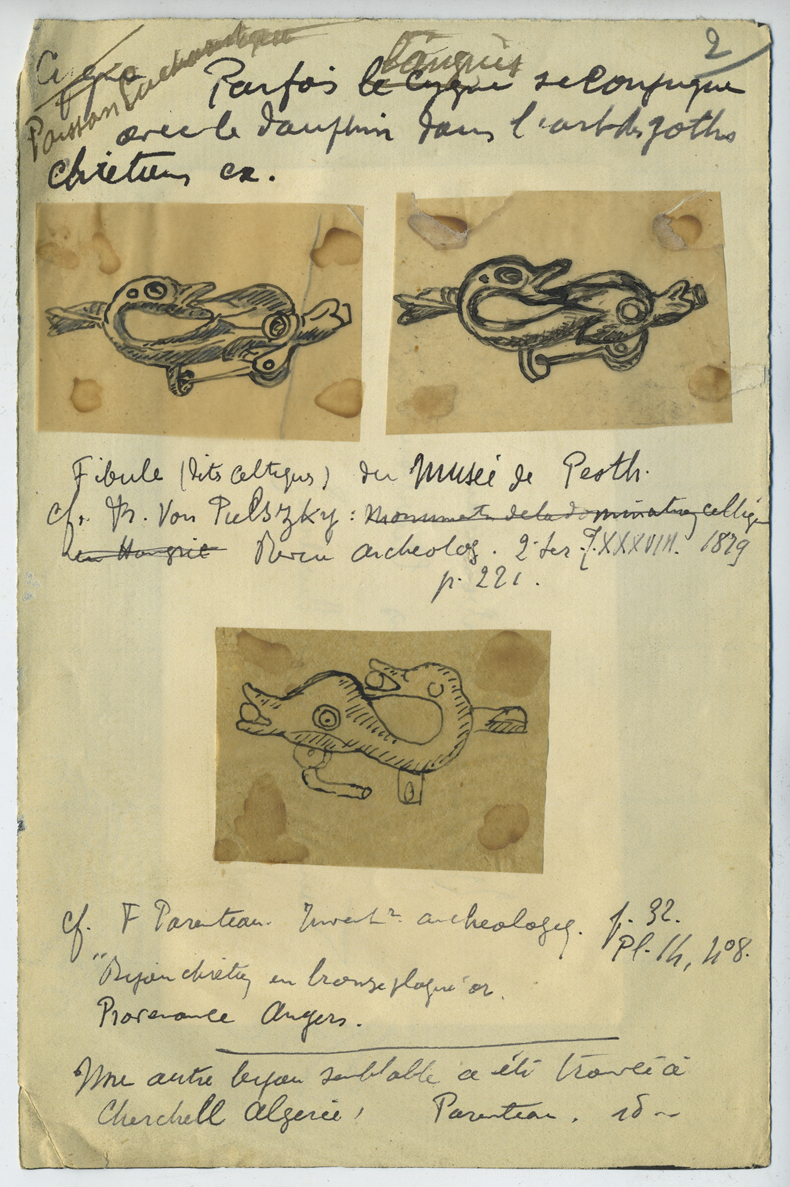 2
Cygne
Poisson Eucharistique
l'anguis
Parfois le Cygne se conjugue
avec le dauphin dans l'art des goths
chrétiens ex.
Fibule (dite celtique) du Musée de Pesth.
cf. Fr. Von Pulszky : Monuments de la domination celtique
en Hongrie Revue archéolog. 2e Ser. T. XXXVIII. 1879
p. 221.
cf. F Parenteau. Invent. archéologiq. p. 32.
Pl. 14, n° 8.
"Bijou chrétien en bronze plaqué or.
Provenance Angers.
Une autre bijou semblable a été trouvé à
Cherchell Algérie, Parenteau. id